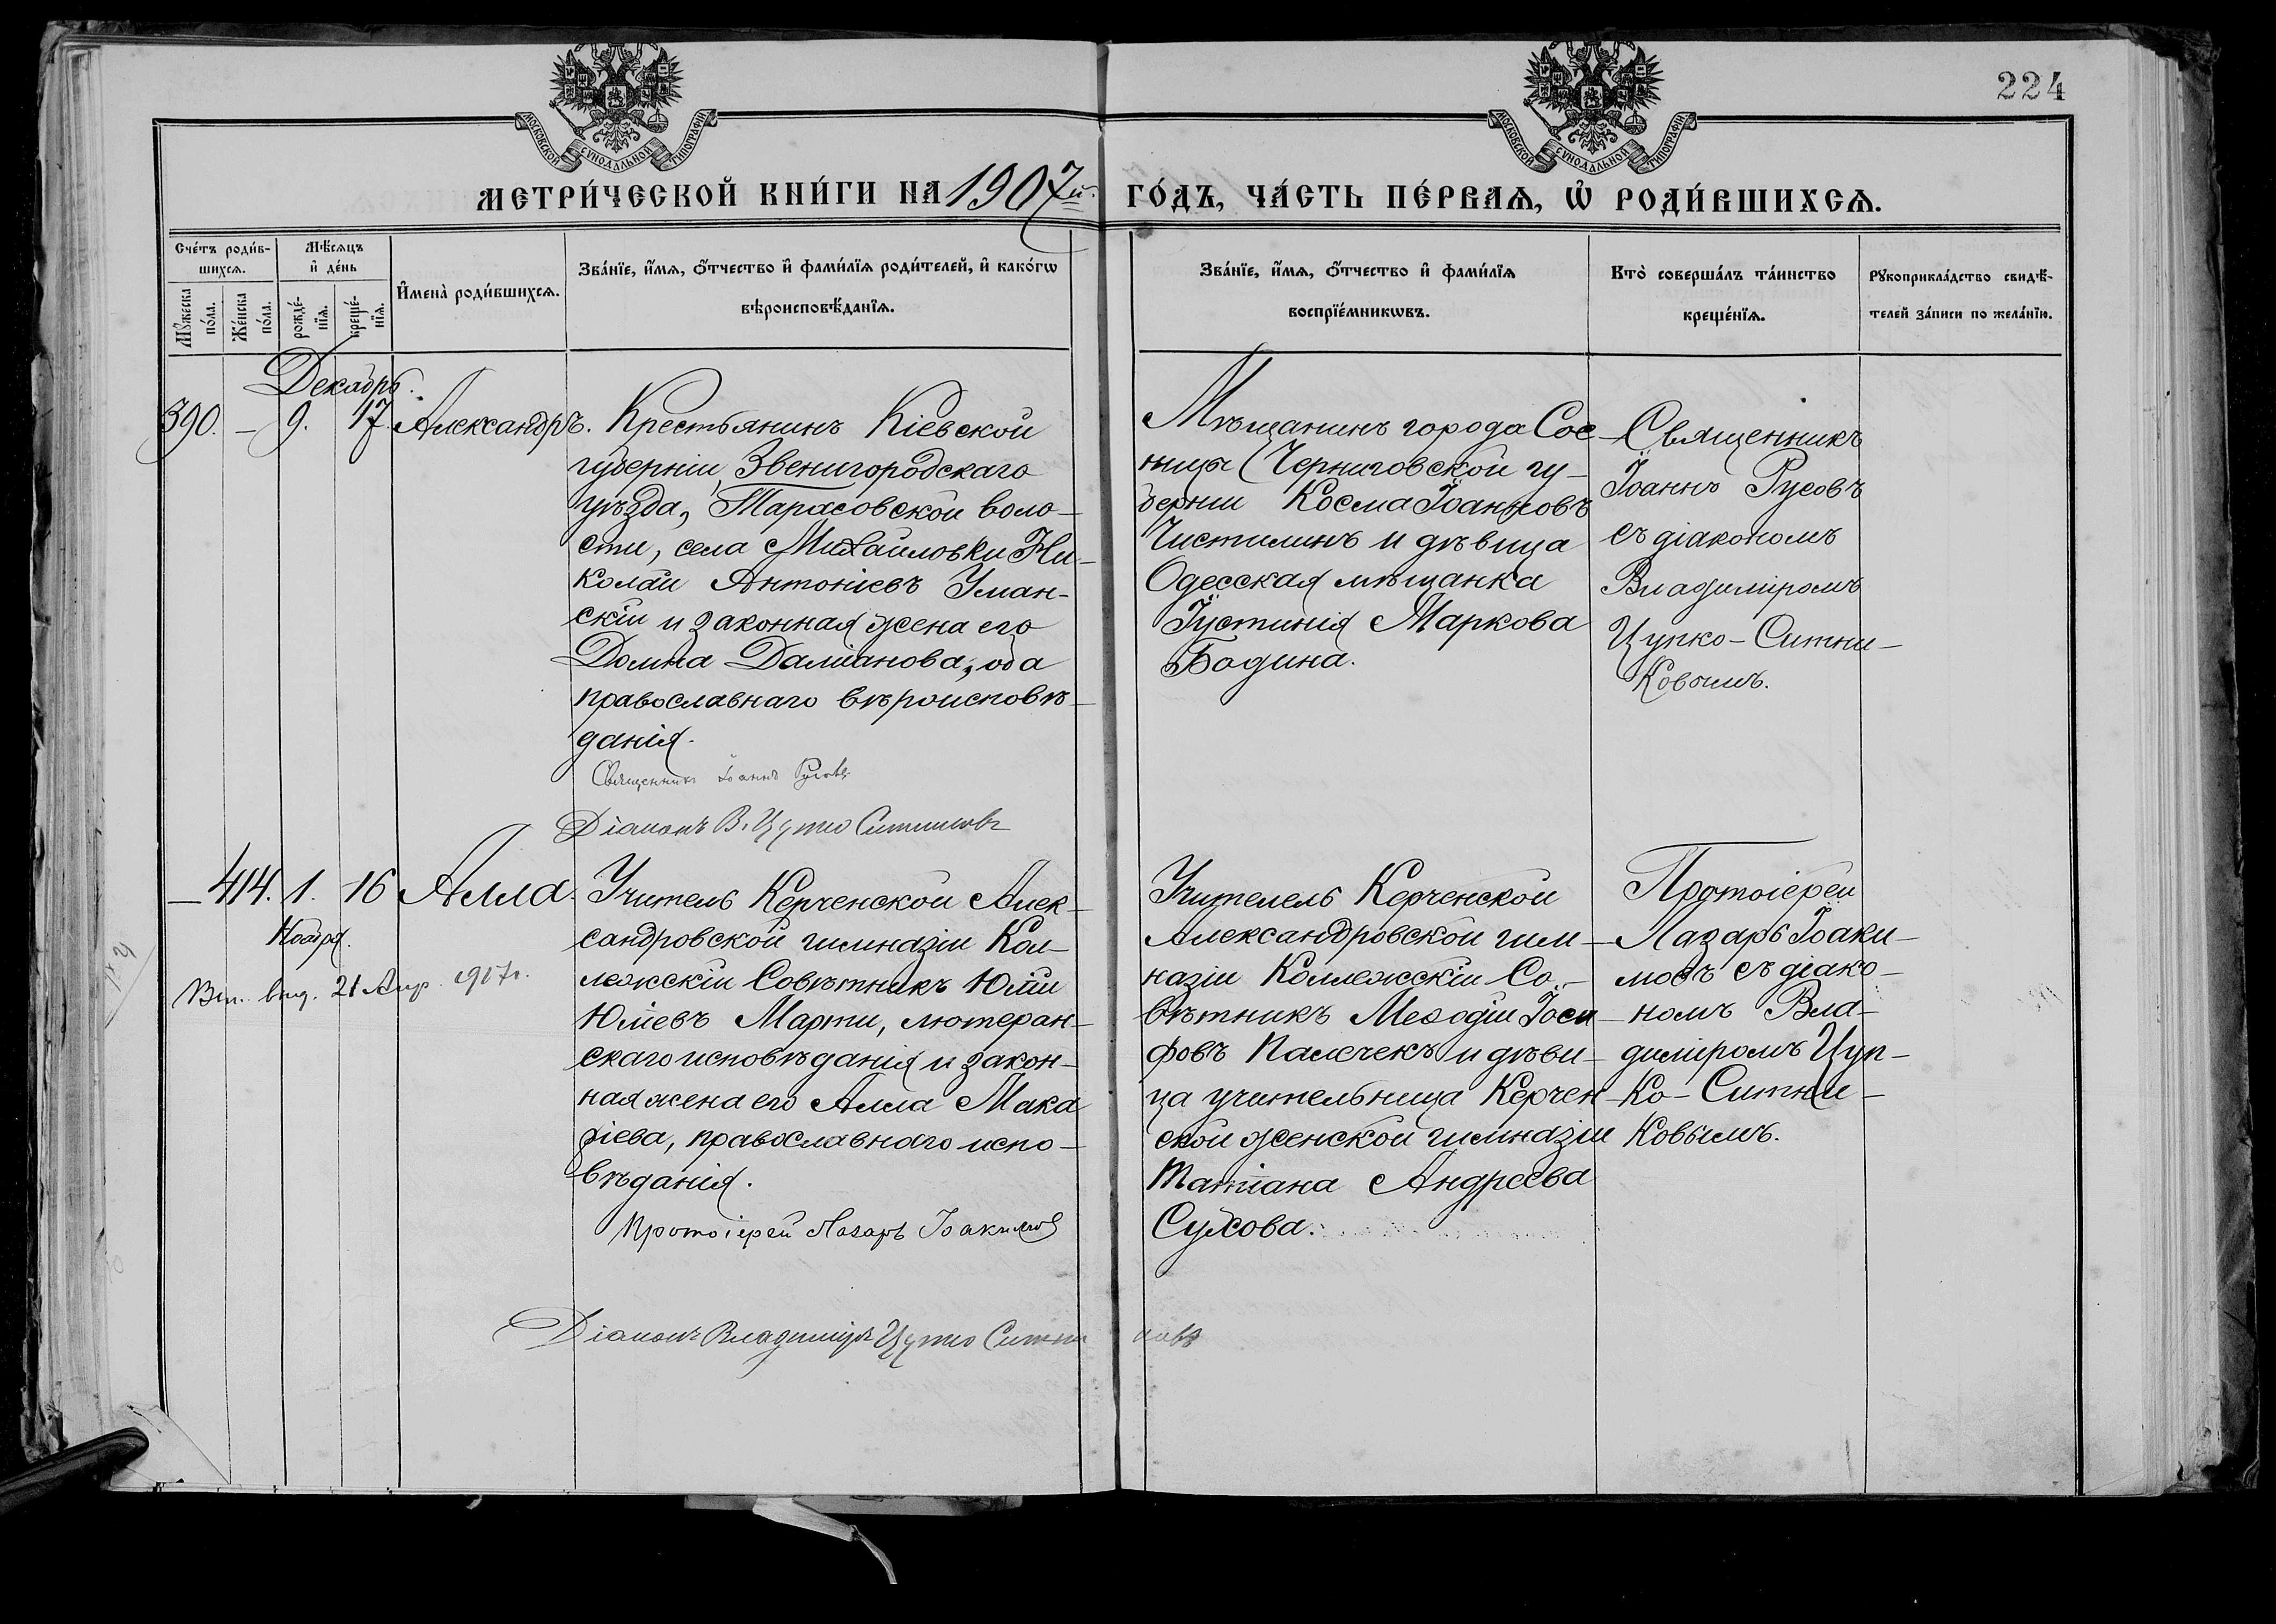 224
МОСКОВСКОЙ СѴНОДАЛЬНОЙ ТИПОГРАФІИ
МОСКОВСКОЙ СѴНОДАЛЬНОЙ ТИПОГРАФІИ
МЕТРИ́ЧЕСКОЙ КНИ́ГИ НА 1907й ГО́ДЪ, ЧА́СТЬ ПЕ́РВАѦ, Ѽ РОДИ́ВШИХСѦ.
Сче́тъ роди́в-
шихсѧ.
Мꙋ́жеска по́ла.
Же́нска по́ла.
Мѣ́сѧцъ
и҆ де́нь
рожде́-нїѧ.
креще́-нїѧ.
И҆мена̀ роди́вшихсѧ.
Зва́нїе, и҆́мѧ, ѻ҆́тчество и҆ фами́лїѧ роди́телей, и҆ како́гѡ
вѣроисповѣ́данїѧ.
Зва́нїе, и҆́мѧ, ѻ҆́тчество и҆ фами́лїѧ
воспрїе́мникѡвъ.
Кто̀ соверша́лъ та́инство
креще́нїѧ.
Рꙋкоприкла́дство свидѣ́-
телей за́писи по жела́нїю.
Декабрь.
390. — 9. 17. Александръ.
Крестьянинъ Кіевской
губерніи, Звенигородскаго
уѣзда, Тарасовской воло-
сти, села Михайловки Ни-
колай Антоніевъ Уман-
скій и законная жена его
Домна Даміанова, оба
православнаго вѣроисповѣ-
данія.
Священникъ Іоаннъ Русовъ
Діаконъ В. Цупко Ситниковъ
Мѣщанинъ города Сос-
ницы Черниговской гу-
берніи Косма Іоанновъ
Чистилинъ и дѣвица
Одесская мѣщанка
Іустинія Маркова
Бодина.
Священникъ
Іоаннъ Русовъ
съ діакономъ
Владиміромъ
Цупко-Ситни-
ковымъ.
— 414. 1. 16 Алла.
Ноября.
выд. 21 Апр. 1907г.
Учитель Керченской Алек-
сандровской гимназіи Кол-
лежскій Совѣтникъ Юлій
Юліевъ Марти, лютеран-
скаго исповѣданія и закон-
ная жена его Алла Мака
ріева, православнаго испо-
вѣданія.
Протоіерей Лазарь Іоакимовъ
Діаконъ Владиміръ Цупко Ситниковъ
Учителель Керченской
Александровской гим-
назіи Коллежскій Со-
вѣтникъ Меѳодій Іоси-
фовъ Палечекъ и дѣви-
ца учительница Керчен-
ской женской гимназіи
Татіана Андреева
Сухова.
Протоіерей
Лазарь Іоаки-
мовъ съ діако-
номъ Вла-
диміромъ Цуп-
ко-Ситни-
ковымъ.